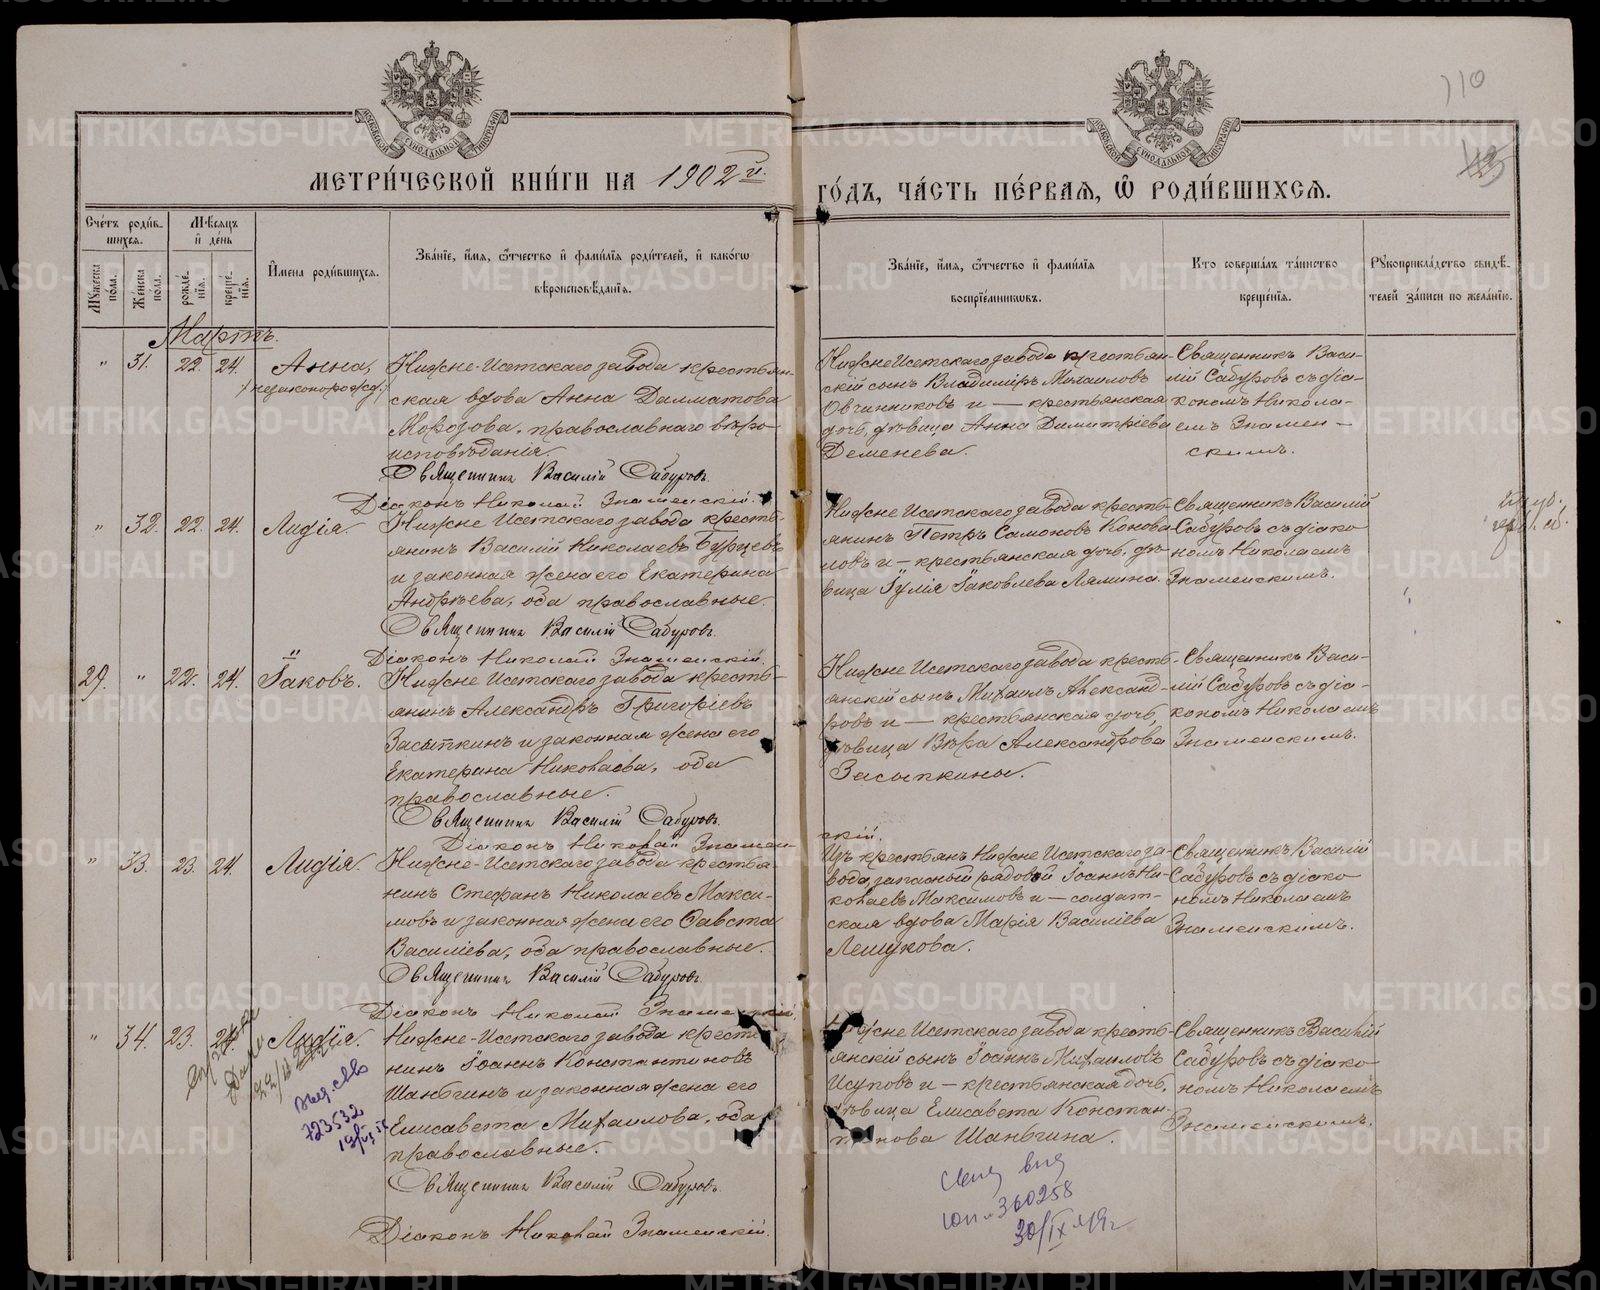 110
43
МЕТРИ́ЧЕСКОЙ КНИ́ГИ НА 1902 й.
ГО́ДЪ, ЧА́СТЬ ПЕ́РВАЯ, Ѡ҆ РОДИ́ВШИХСЯ.
Сче́тъ роди́в-
шихся.
Мꙋ́жеска по́ла.
Же́нска по́ла.
Мѣ́сяцъ
и҆ де́нь
рожде́-
нїѧ.
креще́-
нїѧ.
И҆мена роди́вшихся.
Зва́нїе, и҆́мя, ѻ҆́тчество и҆ фами́лїя роди́телей, и҆ како́гѡ
вѣроисповѣ́данїѧ.
Зва́нїе, и҆́мя, ѻ҆́тчество и҆ фами́лїя
воспрїе́мникѡвъ.
Кто̀ соверша́лъ та́инство
креще́нїѧ.
Рꙋкоприкла́дство свидѣ́-
телей за́писи по жела́нїю.
Мартъ.
" 31. 22. 24.
Анна,
/незаконорожд./
Нижне-Исетскаго завода крестьян-
ская вдова Анна Далматова
Морозова, православнаго вѣро-
исповѣданія.
Священникъ Василій Сабуровъ.
Діаконъ Николай Знаменскій.
Нижне Исетскаго завода крестьян-
скій сынъ Владиміръ Михаиловъ
Овчинниковъ и — крестьянская
дочь, дѣвица Анна Димитріева
Деменева.
Священникъ Васи-
лій Сабуровъ съ діа-
кономъ Никола-
емъ Знамен-
скимъ.
" 32. 22. 24.
Лидія.
Нижне Исетскаго завода кресть-
янинъ Василій Николаевъ Бурцевъ
и законная жена его Екатерина
Андреева, оба православные.
Священникъ Василій Сабуровъ.
Діаконъ Николай Знаменскій.
Нижне Исетскаго завода кресть-
янинъ Петръ Самоновъ Конова-
ловъ и — крестьянская дочь, дѣ-
вица Іулія Іаковлева Лямина.
Священникъ Василій
Сабуровъ съ діако-
номъ Николаемъ
Знаменскимъ.
29. " 22. 24.
Іаковъ.
Нижне Исетскаго завода кресть-
янинъ Александръ Григоріевъ
Засыпкинъ и законная жена его
Екатерина Николаева, оба
православные.
Священникъ Василій Сабуровъ.
Діаконъ Николай Знамен-
скій.
Нижне Исетскаго завода кресть-
янскій сынъ Михаилъ Александ-
ровъ и — крестьянская дочь,
дѣвица Вѣра Александрова
Засыпкины.
Священникъ Васи-
лій Сабуровъ съ діа-
кономъ Николаемъ
Знаменскимъ.
" 33. 23. 24.
Лидія.
Нижне-Исетскаго завода крестья-
нинъ Стефанъ Николаевъ Макси-
мовъ и законная жена его Савста
Василіева, оба православные.
Священникъ Василій Сабуровъ.
Діаконъ Николай Знаменскій.
Изъ крестьянъ Нижне Исетскаго за-
вода, запасный рядовой Іоаннъ Ни-
колаевъ Максимовъ и — солдат-
ская вдова Марія Василіева
Лешукова.
Священникъ Василій
Сабуровъ съ діако-
номъ Николаемъ
Знаменскимъ.
" 34. 23. 24.
Лидія.
Нижне-Исетскаго завода крестья-
нинъ Іоаннъ Константиновъ
Шаньгинъ и законная жена его
Елисавета Михаилова, оба
православные.
Священникъ Василій Сабуровъ.
Діаконъ Николай Знаменскій.
Нижне Исетскаго завода кресть-
янскій сынъ Іоаннъ Михаиловъ
Исуповъ и — крестьянская дочь,
дѣвица Елисавета Констан-
тинова Шаньгина.
Священникъ Василій
Сабуровъ съ діако-
номъ Николаемъ
Знаменскимъ.
723532
360258
30/IX